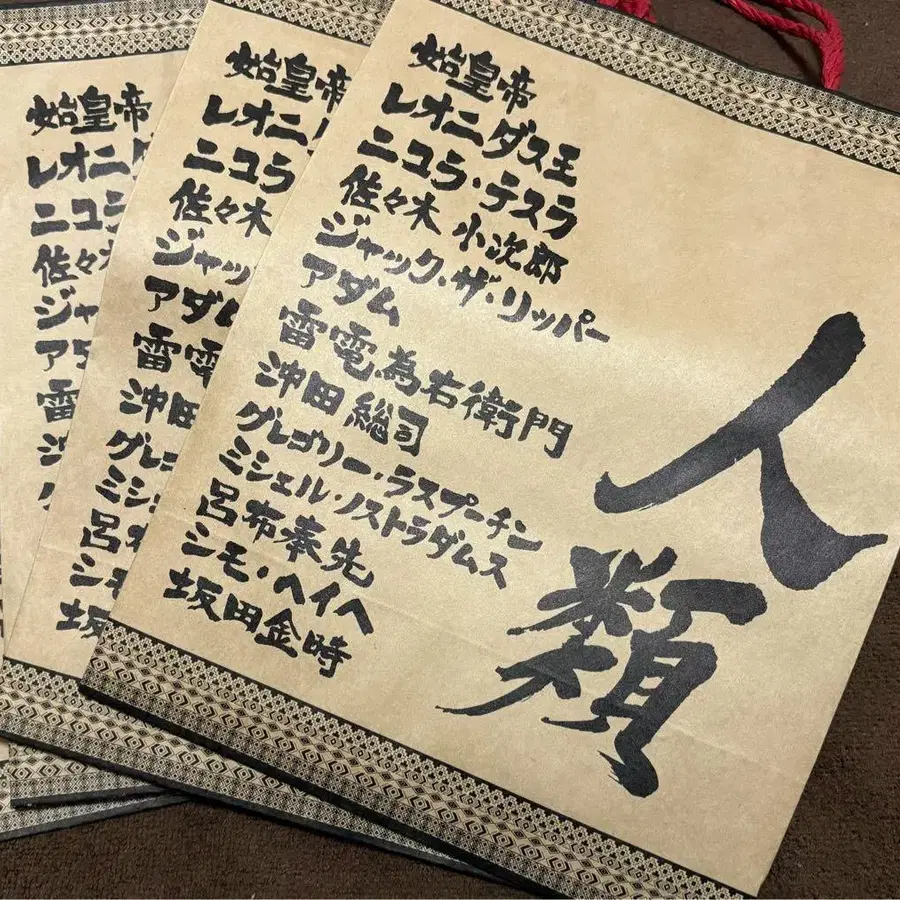 始皇帝
レオニダス王
ニコラ・テスラ
佐々木 小次郎
ジャック・ザ・リッパー
アダム
雷電為右衛門
沖田総司
グレゴリー・ラスプーチン
ミシェル・ノストラダムス
呂布奉先
シモ・ヘイヘ
坂田金時
人類
始皇帝
レオニ
ニコラ
佐々木
ジャッ
アダム
雷電
沖田
グレゴ
ミシェ
呂布
シモ
坂
始皇帝
レオニ
ニコラ
佐々木
ジャ
アダ
雷
沖
グ